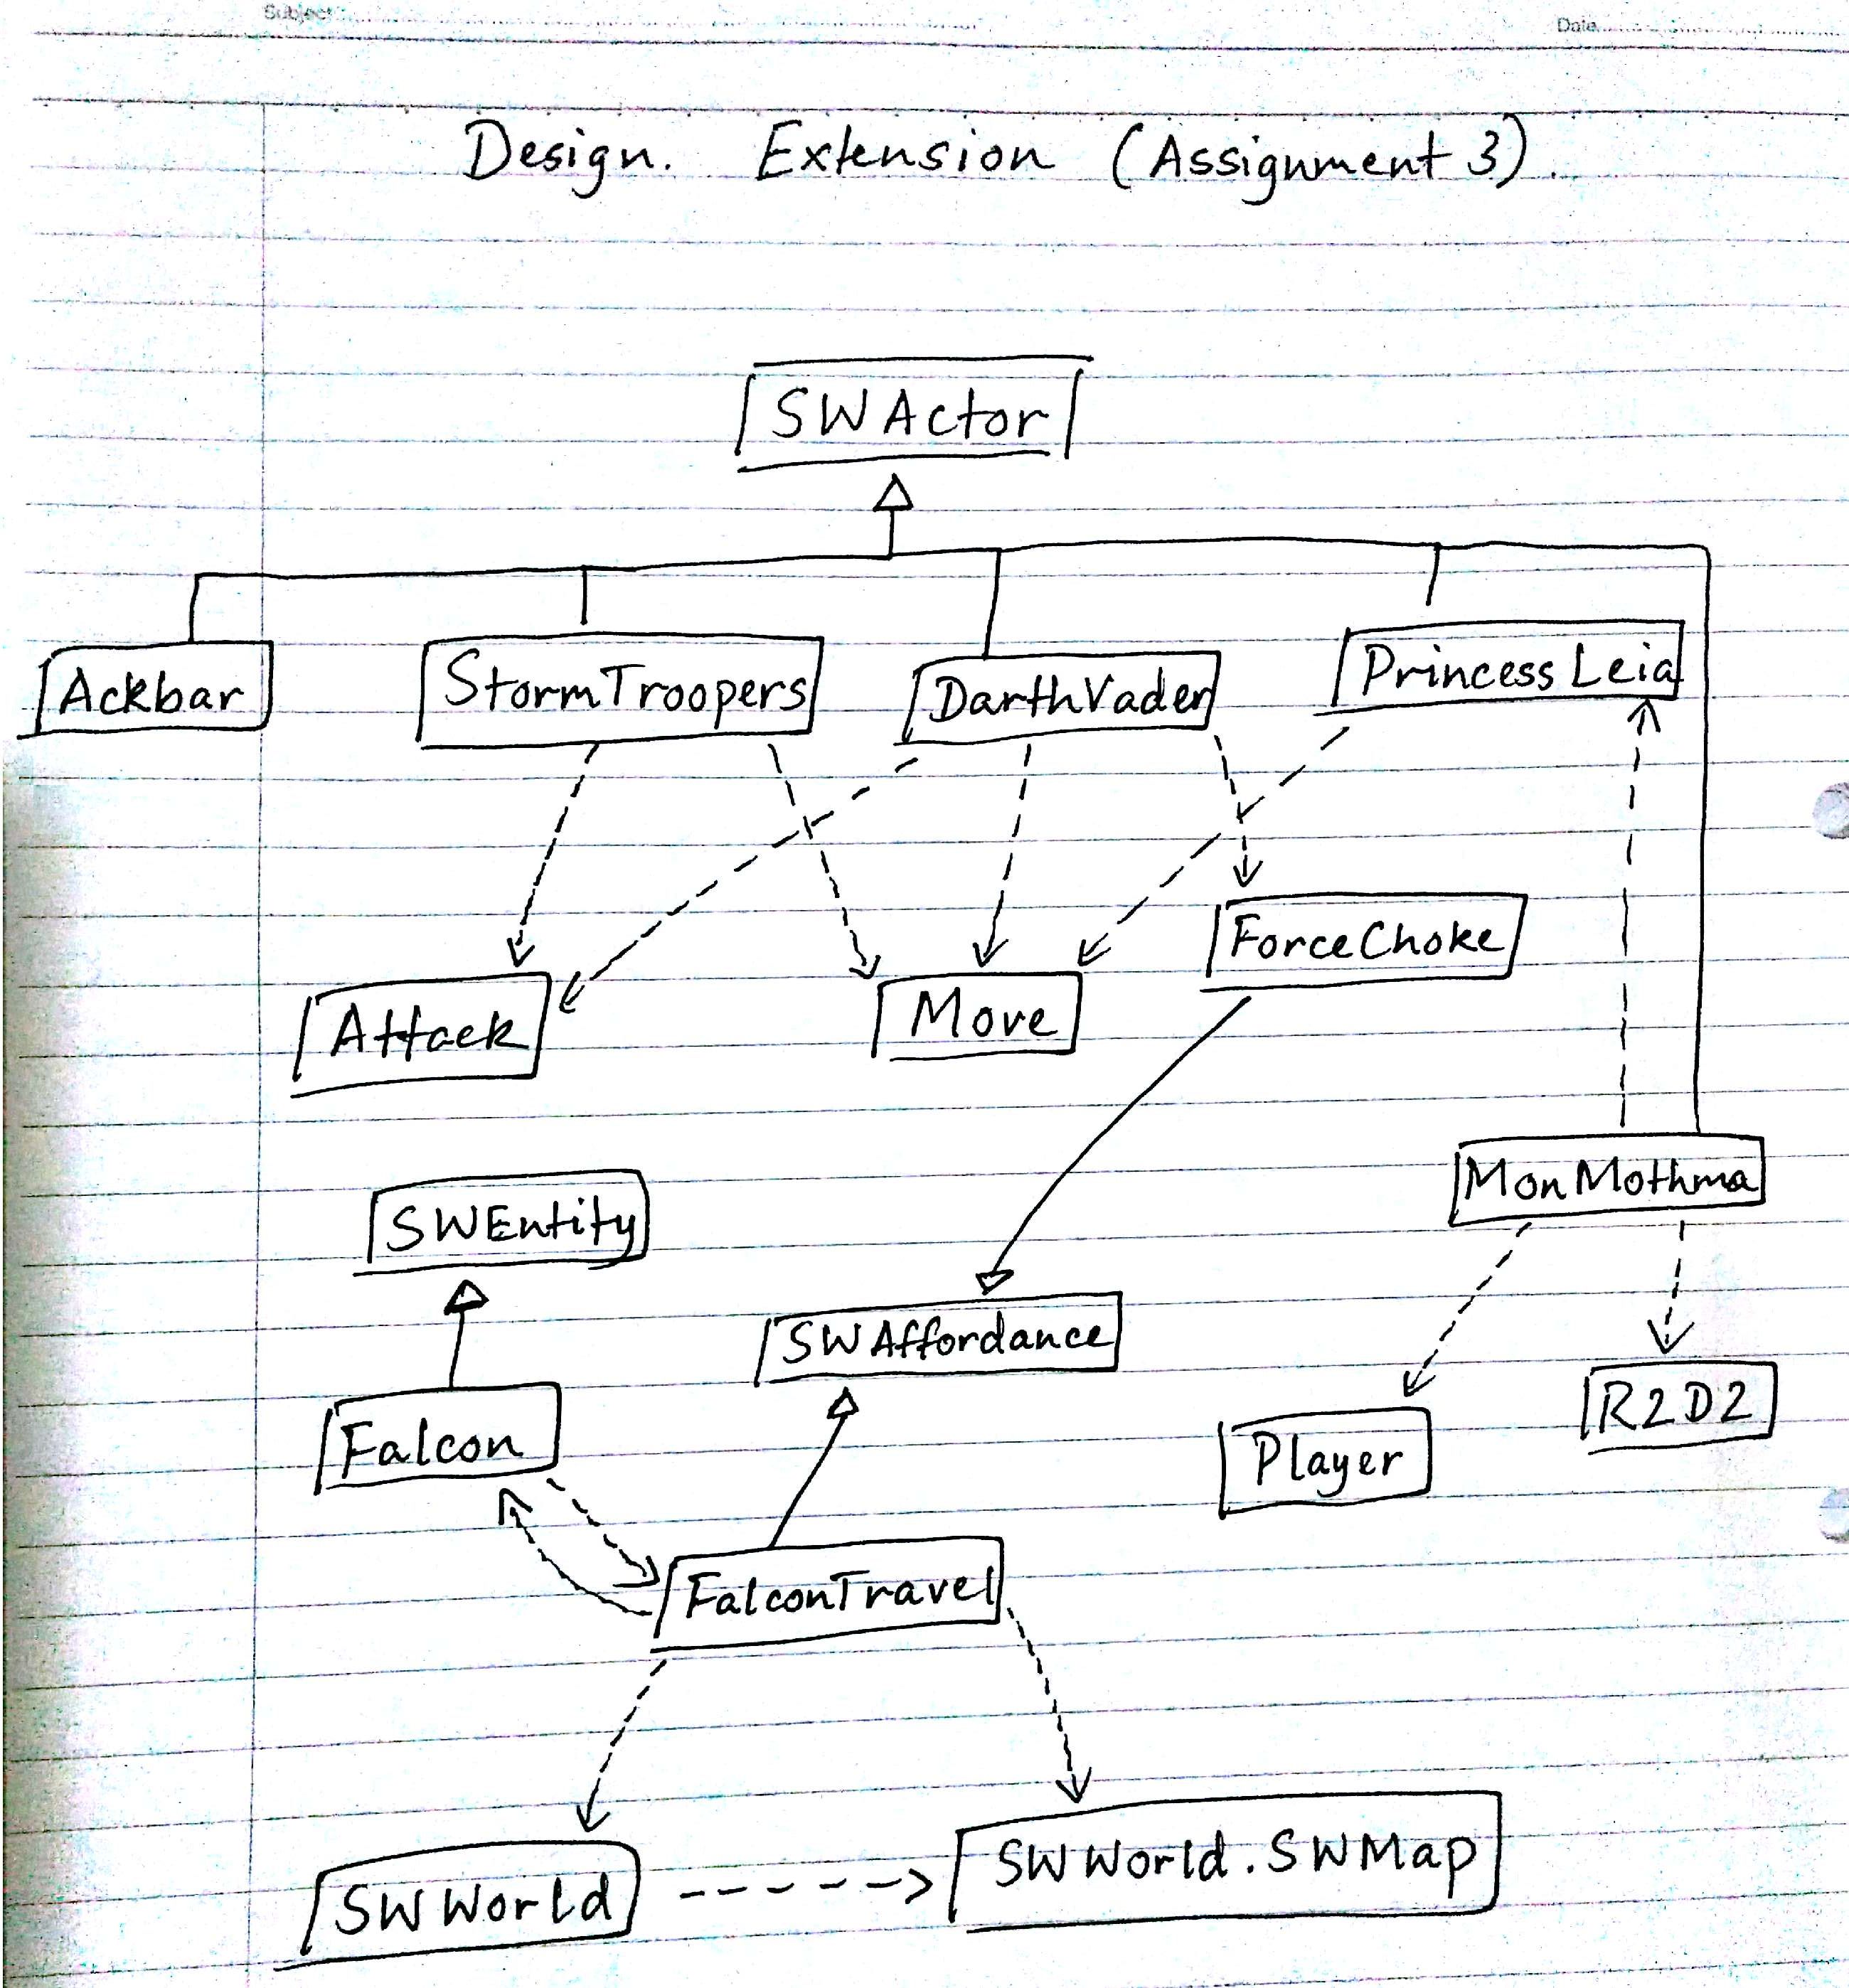 Subject
Date
Design. Extension (Assignment 3).
SWActor
Ackbar
StormTroopers
DarthVader
PrincessLeia
ForceChoke
Attack
Move
MonMothma
SWEntity
SWAffordance
R2D2
Falcon
Player
FalconTravel
SWWorld.SWMap
SWWorld